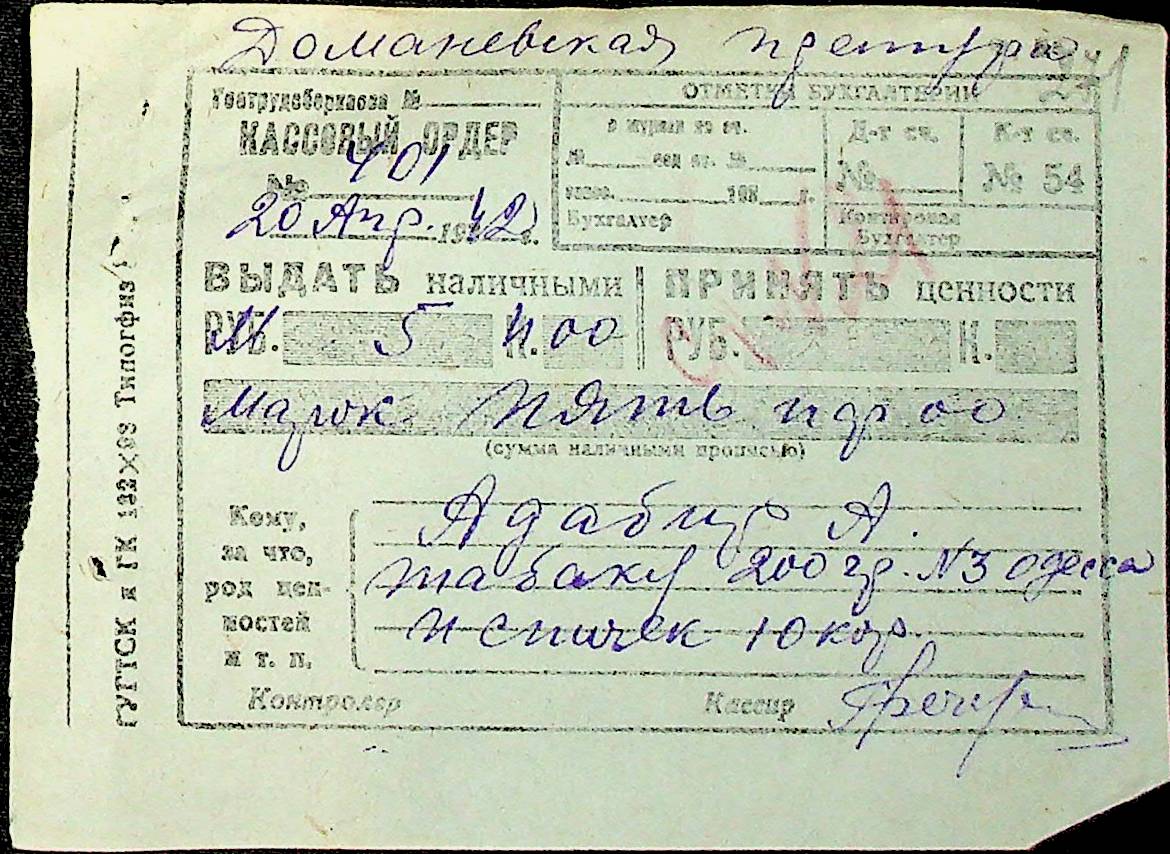 Доманевская претура
241
Гострудсберкасса №
КАССОВЫЙ ОРДЕР
№ 401
20 Апр. 1942 г.
ОТМЕТКИ БУХГАЛТЕРИИ
№ под от. №
193 г.
Бухгалтер
Д-т сч.
№
К-т сч.
№ 54
Контировал
Бухгалтер
ВЫДАТЬ наличными
РУБ. 5 К. 00
ПРИНЯТЬ ценности
РУБ. К.
Марок Пять пф 00
(сумма наличными прописью)
Кому,
за что,
род цен-
ностей
и т. п.
Адабир А.
табаку 200 гр. №3 одесса
и спичек 10 кор.
Контролер
Кассир
ГУГТСК и ГК 132×93 Типогфиз